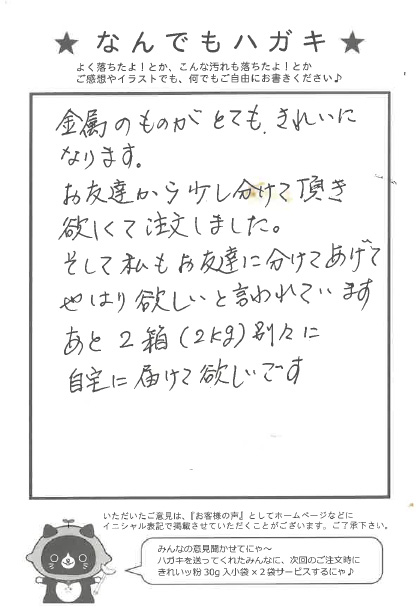 ★ なんでもハガキ ★
よく落ちたよ！とか、こんな汚れも落ちたよ！とか
ご感想やイラストでも、何でもご自由にお書きください♪
金属のものがとても、きれいに
なります。
お友達から少し分けて頂き
欲しくて注文しました。
そして私もお友達に分けてあげて
やはり欲しいと言われています
あと2箱(2kg)別々に
自宅に届けて欲しいです
いただいたご意見は、『お客様の声』としてホームページなどに
イニシャル表記で掲載させていただくことがございます。ご了承下さい。
みんなの意見聞かせてにゃ～
ハガキを送ってくれたみんなに、次回のご注文時に
きれいッ粉 30g 入小袋×2袋サービスするにゃ♪